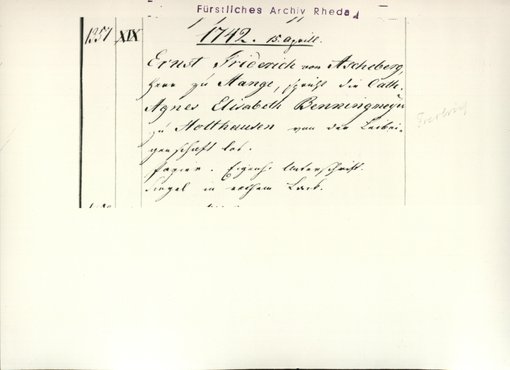 Fürstliches Archiv Rheda
1357 XIX 1742. 15. Aprill.
Ernst Friderich von Ascheberg,
Herr zu Stange, spricht die Cath.
Agnes Elisabeth Benningmeyer
zu Holthausen von der Leibei-
genschaft los.
Papier. Eigenh. Unterschrift.
Siegel in rothem Lack.